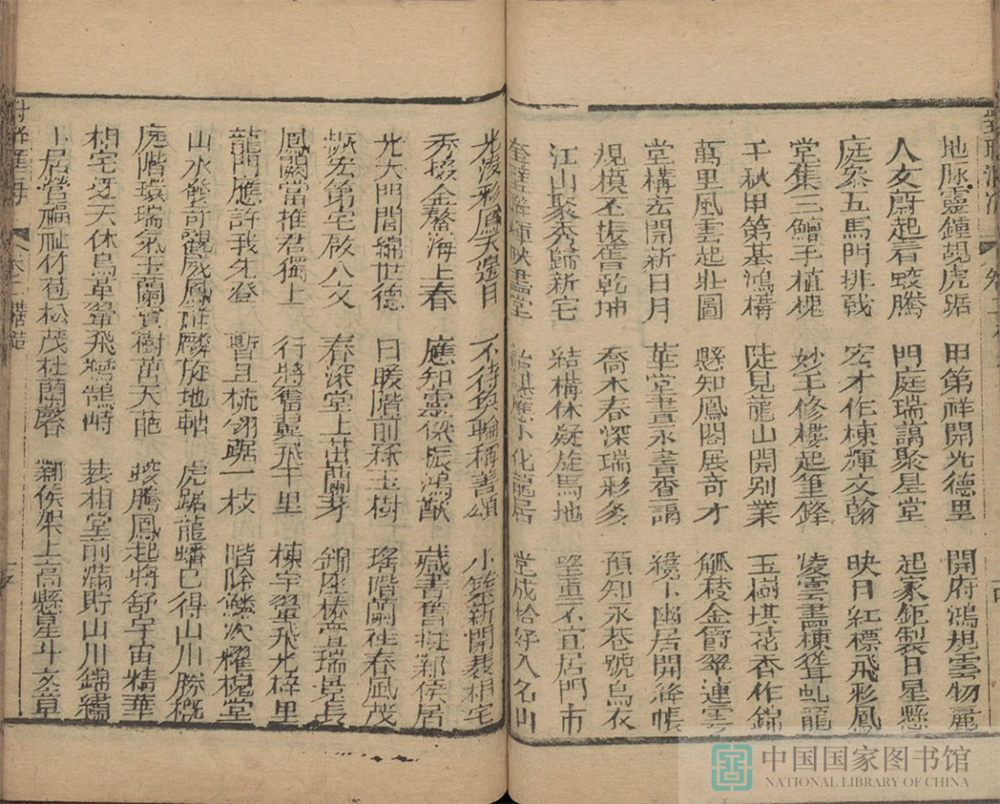 地脉靈鍾覘虎踞 甲第祥開光德里 開府鴻規雲物麗
人文蔚起看蛟騰 門庭瑞藹聚星堂 起家鉅製日星懸
庭叅五馬門排戟 宏才作棟輝文翰 映日紅標飛彩鳳
堂集三鱣手植槐 妙手修樓起筆鋒 凌雲畫棟聳虬龍
千秋甲第基鴻構 陡見龍山開別業 玉樹琪花香作錦
萬里風雲起壯圖 懸知鳳閣展奇才 觚稜金爵翠連雲
堂構宏開新日月 華堂晝永書香藹 下幽居開絳帳
規模丕振舊乾坤 喬木春深瑞彩多 預知永巷號烏衣
江山聚秀歸新宅 結構休疑旋馬地 重不宜居門市
奎璧聯輝映畫堂 詒謀應卜化龍居 堂成恰好入名山
光凌彩鳳天邊日 不待奐輪稱善頌 小築新開裴相宅
秀掇金鰲海上春 應知靈俶振鴻猷 藏書舊擬鄴侯居
光大門閭綿世德 日暖階前森玉樹 瑤階蘭桂春風茂
恢宏第宅啟人文 春深堂上茁蘭芽 錦座椿萱瑞景長
鳳闕當推君獨上 行將奮翼飛千里 棟宇翬飛光梓里
龍門應許我先登 暫且梳翎踞一枝 階除鱗次耀槐堂
山水發奇觀威鳳祥麟旋地軸 虎踞龍蟠已得山川勝概
庭階環瑞氣玉蘭寶樹天葩 蛟騰鳳起將舒宇宙精華
相宅受天休鳥革翬飛鸞鵠峙 裴相堂前滿貯山川錦繡
卜居營福祉竹苞松茂杜蘭馨 鄴侯架上高懸星斗文章
中国国家图书馆
NATIONAL LIBRARY OF CHINA